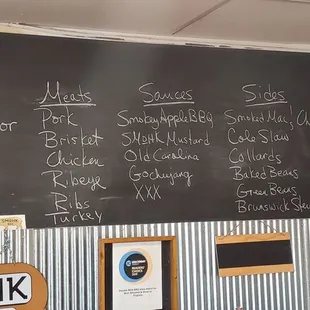 or
Meats
Pork
Brisket
Chicken
Ribeye
Ribs
Turkey
Sauces
Smokey Apple BBQ
SMOHK Mustard
Old Carolina
Gochujang
XXX
Sides
Smoked Mac
Cole Slaw
Collards
Baked Beans
Green Beans
Brunswick Stew
HK